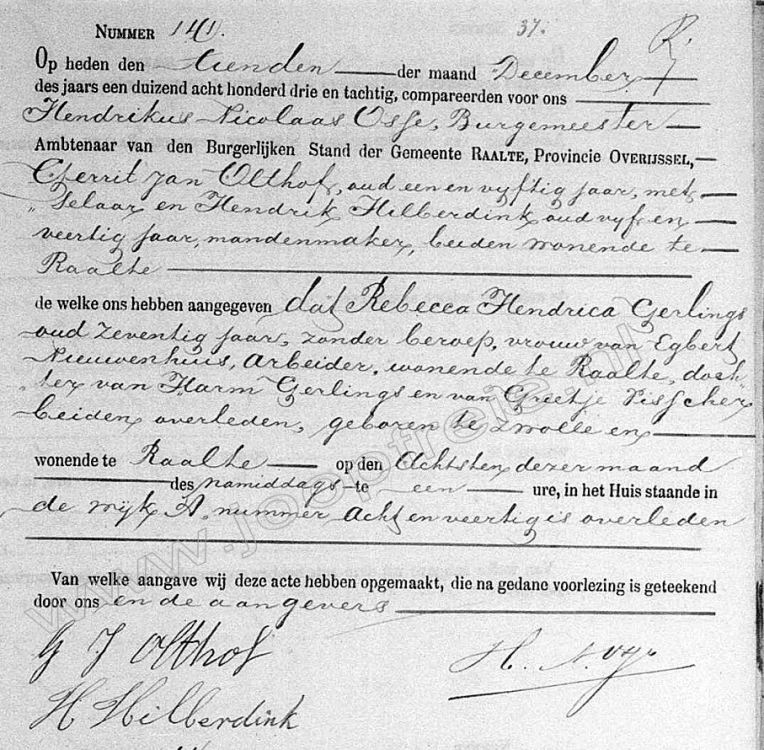 NUMMER 141. 37. R.
Op heden den tienden der maand December
des jaars een duizend acht honderd drie en tachtig, compareerden voor ons
Hendrikus Nicolaas Osse, Burgemeester
Ambtenaar van den Burgerlijken Stand der Gemeente RAALTE, Provincie OVERIJSSEL,
Gerrit Jan Olthof, oud een en vyftig jaar, met-
"selaar en Hendrik Hilberdink oud vyf en
veertig jaar, mandenmaker, beiden wonende te
Raalte
de welke ons hebben aangegeven dat Rebecca Hendrica Gerlings
oud zeventig jaar, zonder beroep, vrouw van Egbert
Nieuwenhuis, arbeider, wonende te Raalte, doch-
ter van Harm Gerlings en van Greetje Visscher
beiden overleden, geboren te Zwolle en
wonende te Raalte op den achtsten dezer maand
des namiddags te een ure, in het Huis staande in
de wyk A. nummer acht en veertig is overleden
Van welke aangave wij deze acte hebben opgemaakt, die na gedane voorlezing is geteekend
door ons en de aangevers
G J Olthof
H Hilberdink
www.jooptreie.nl